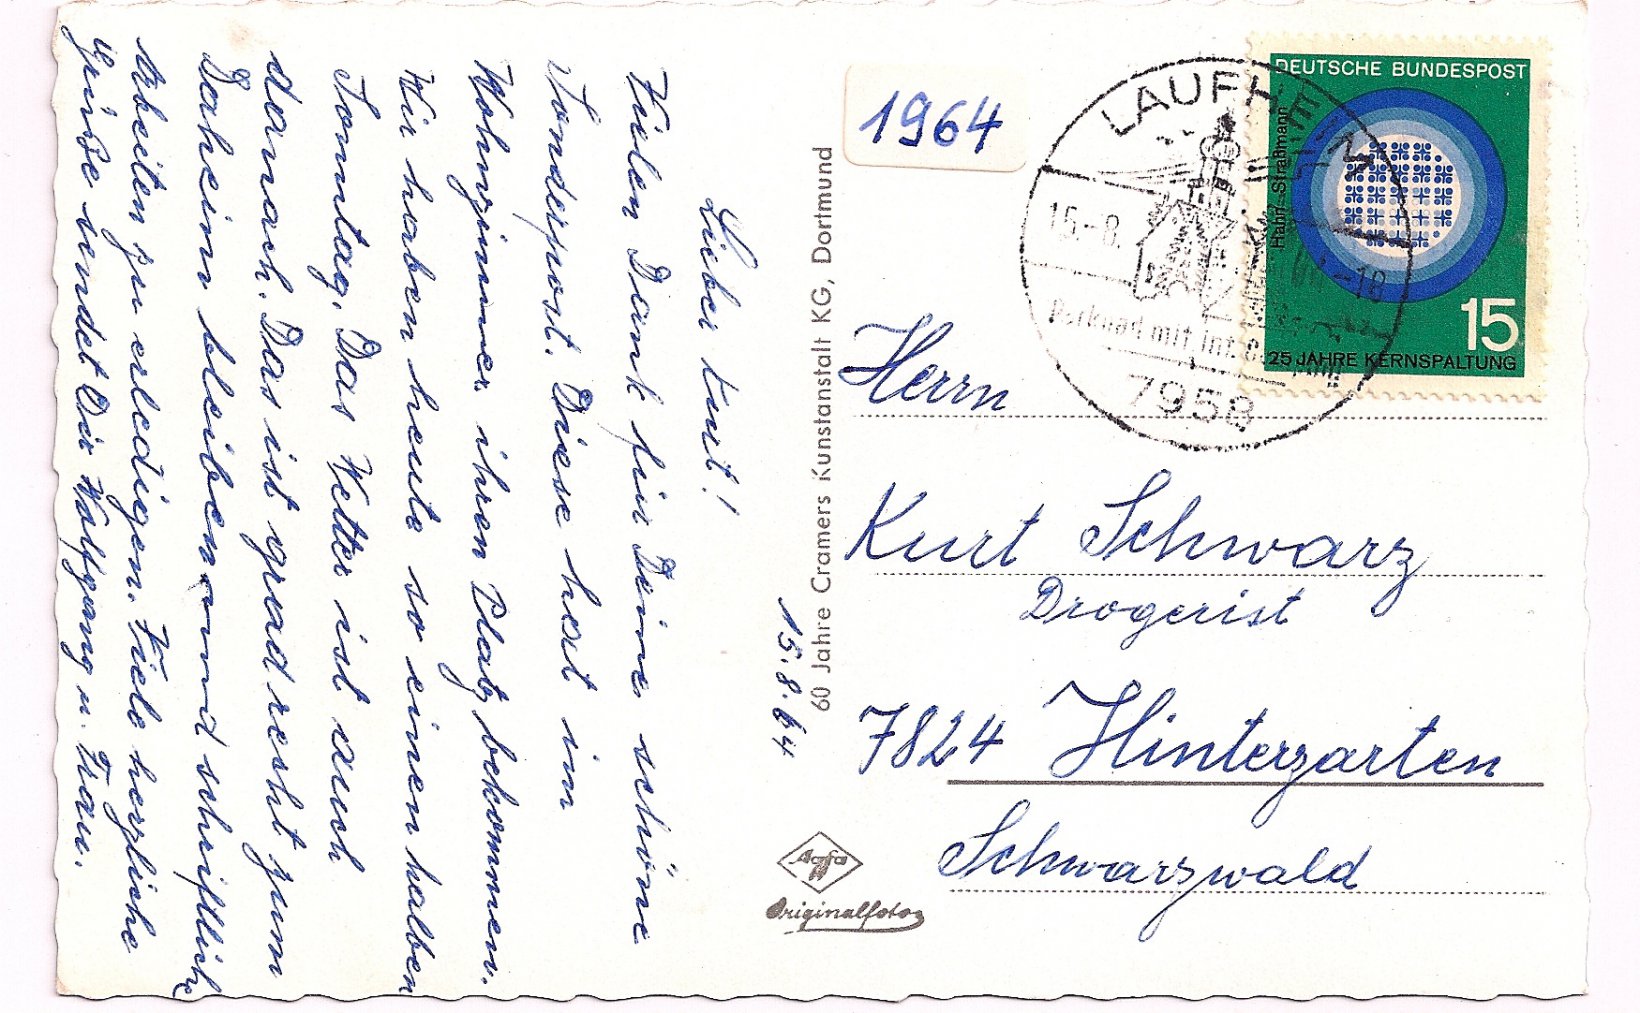 Lieber Kurt!
Vielen Dank für Deine schöne
Sonderpost. Diese hat im
Wohnzimmer ihren Platz bekommen.
Wir haben heute so einen halben
Sonntag. Das Wetter ist auch
danach. Das ist grad recht zum
Daheim bleiben und schriftliche
Arbeiten zu erledigen. Viele herzliche
Grüße sendet Dir Wolfgang u. Frau.
15.8.64
60 Jahre Cramers Kunstanstalt KG, Dortmund
Agfa
Originalfoto
1964
LAUPHEIM
15.-8.
-18
Parkbad mit int.
7958
DEUTSCHE BUNDESPOST
Hahn-Straßmann
15
25 JAHRE KERNSPALTUNG
Herrn
Kurt Schwarz
Drogerist
7824 Hinterzarten
Schwarzwald